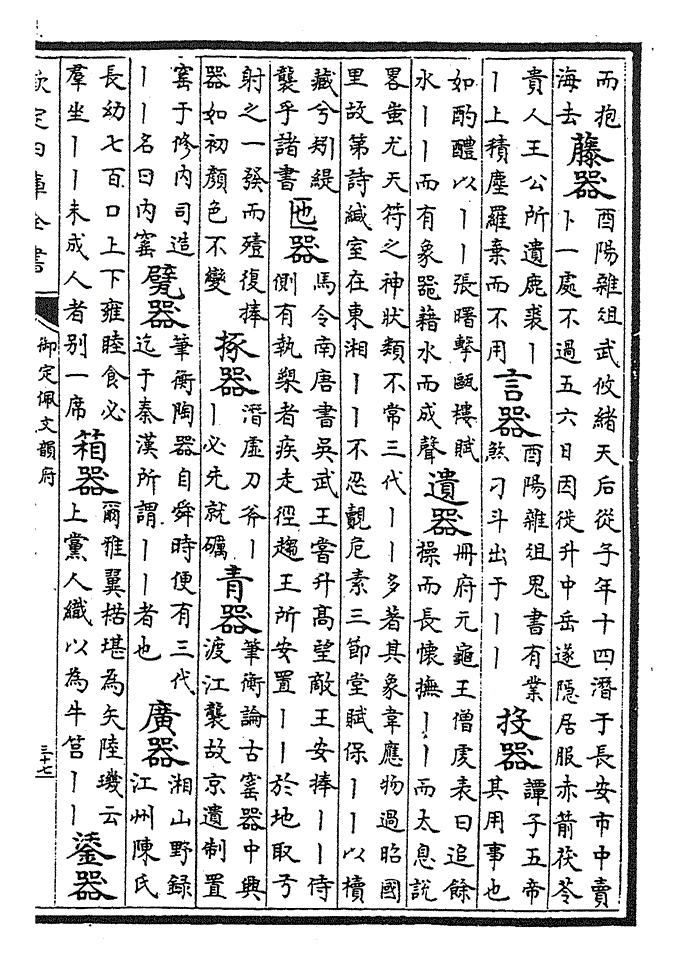 而抱
海去
藤器
酉陽雜俎武攸緒天后從子年十四潛于長安市中賣
卜一處不過五六日因徙升中岳遂隱居服赤箭茯苓
貴人王公所遺鹿裘丨
丨上積塵羅棄而不用
言器
酉陽雜俎鬼書有業
煞刁斗出于丨丨
投器
譚子五帝
其用事也
如酌醴以丨丨張曙擊甌樓賦
水丨丨而有象器藉水而成聲
遺器
冊府元龜王僧虔表曰追餘
操而長懷撫丨丨而太息説
畧蚩尤天符之神狀類不常三代丨丨多著其象韋應物過昭國
里故第詩緘室在東湘丨丨不忍覿危素三節堂賦保丨丨以櫝
藏兮矧緹
襲乎諸書
匜器
馬令南唐書吳武王嘗升高望敵王安捧丨丨侍
側有執槊者疾走徑趨王所安置丨丨於地取弓
射之一發而殪復捧
器如初顔色不變
㧻器
潛虛刀斧丨
丨必先就礪
青器
筆衡論古窯器中興
渡江襲故京遺制置
窯于修内司造
丨丨名曰内窯
甓器
筆衡陶器自舜時便有三代
迄于秦漢所謂丨丨者也
廣器
湘山野録
江州陳氏
長幼七百口上下雍睦食必
羣坐丨丨未成人者别一席
箱器
爾雅翼楛堪為矢陸璣云
上黨人織以為牛筥丨丨
鍌器
欽定四庫全書
御定佩文韻府
三十七